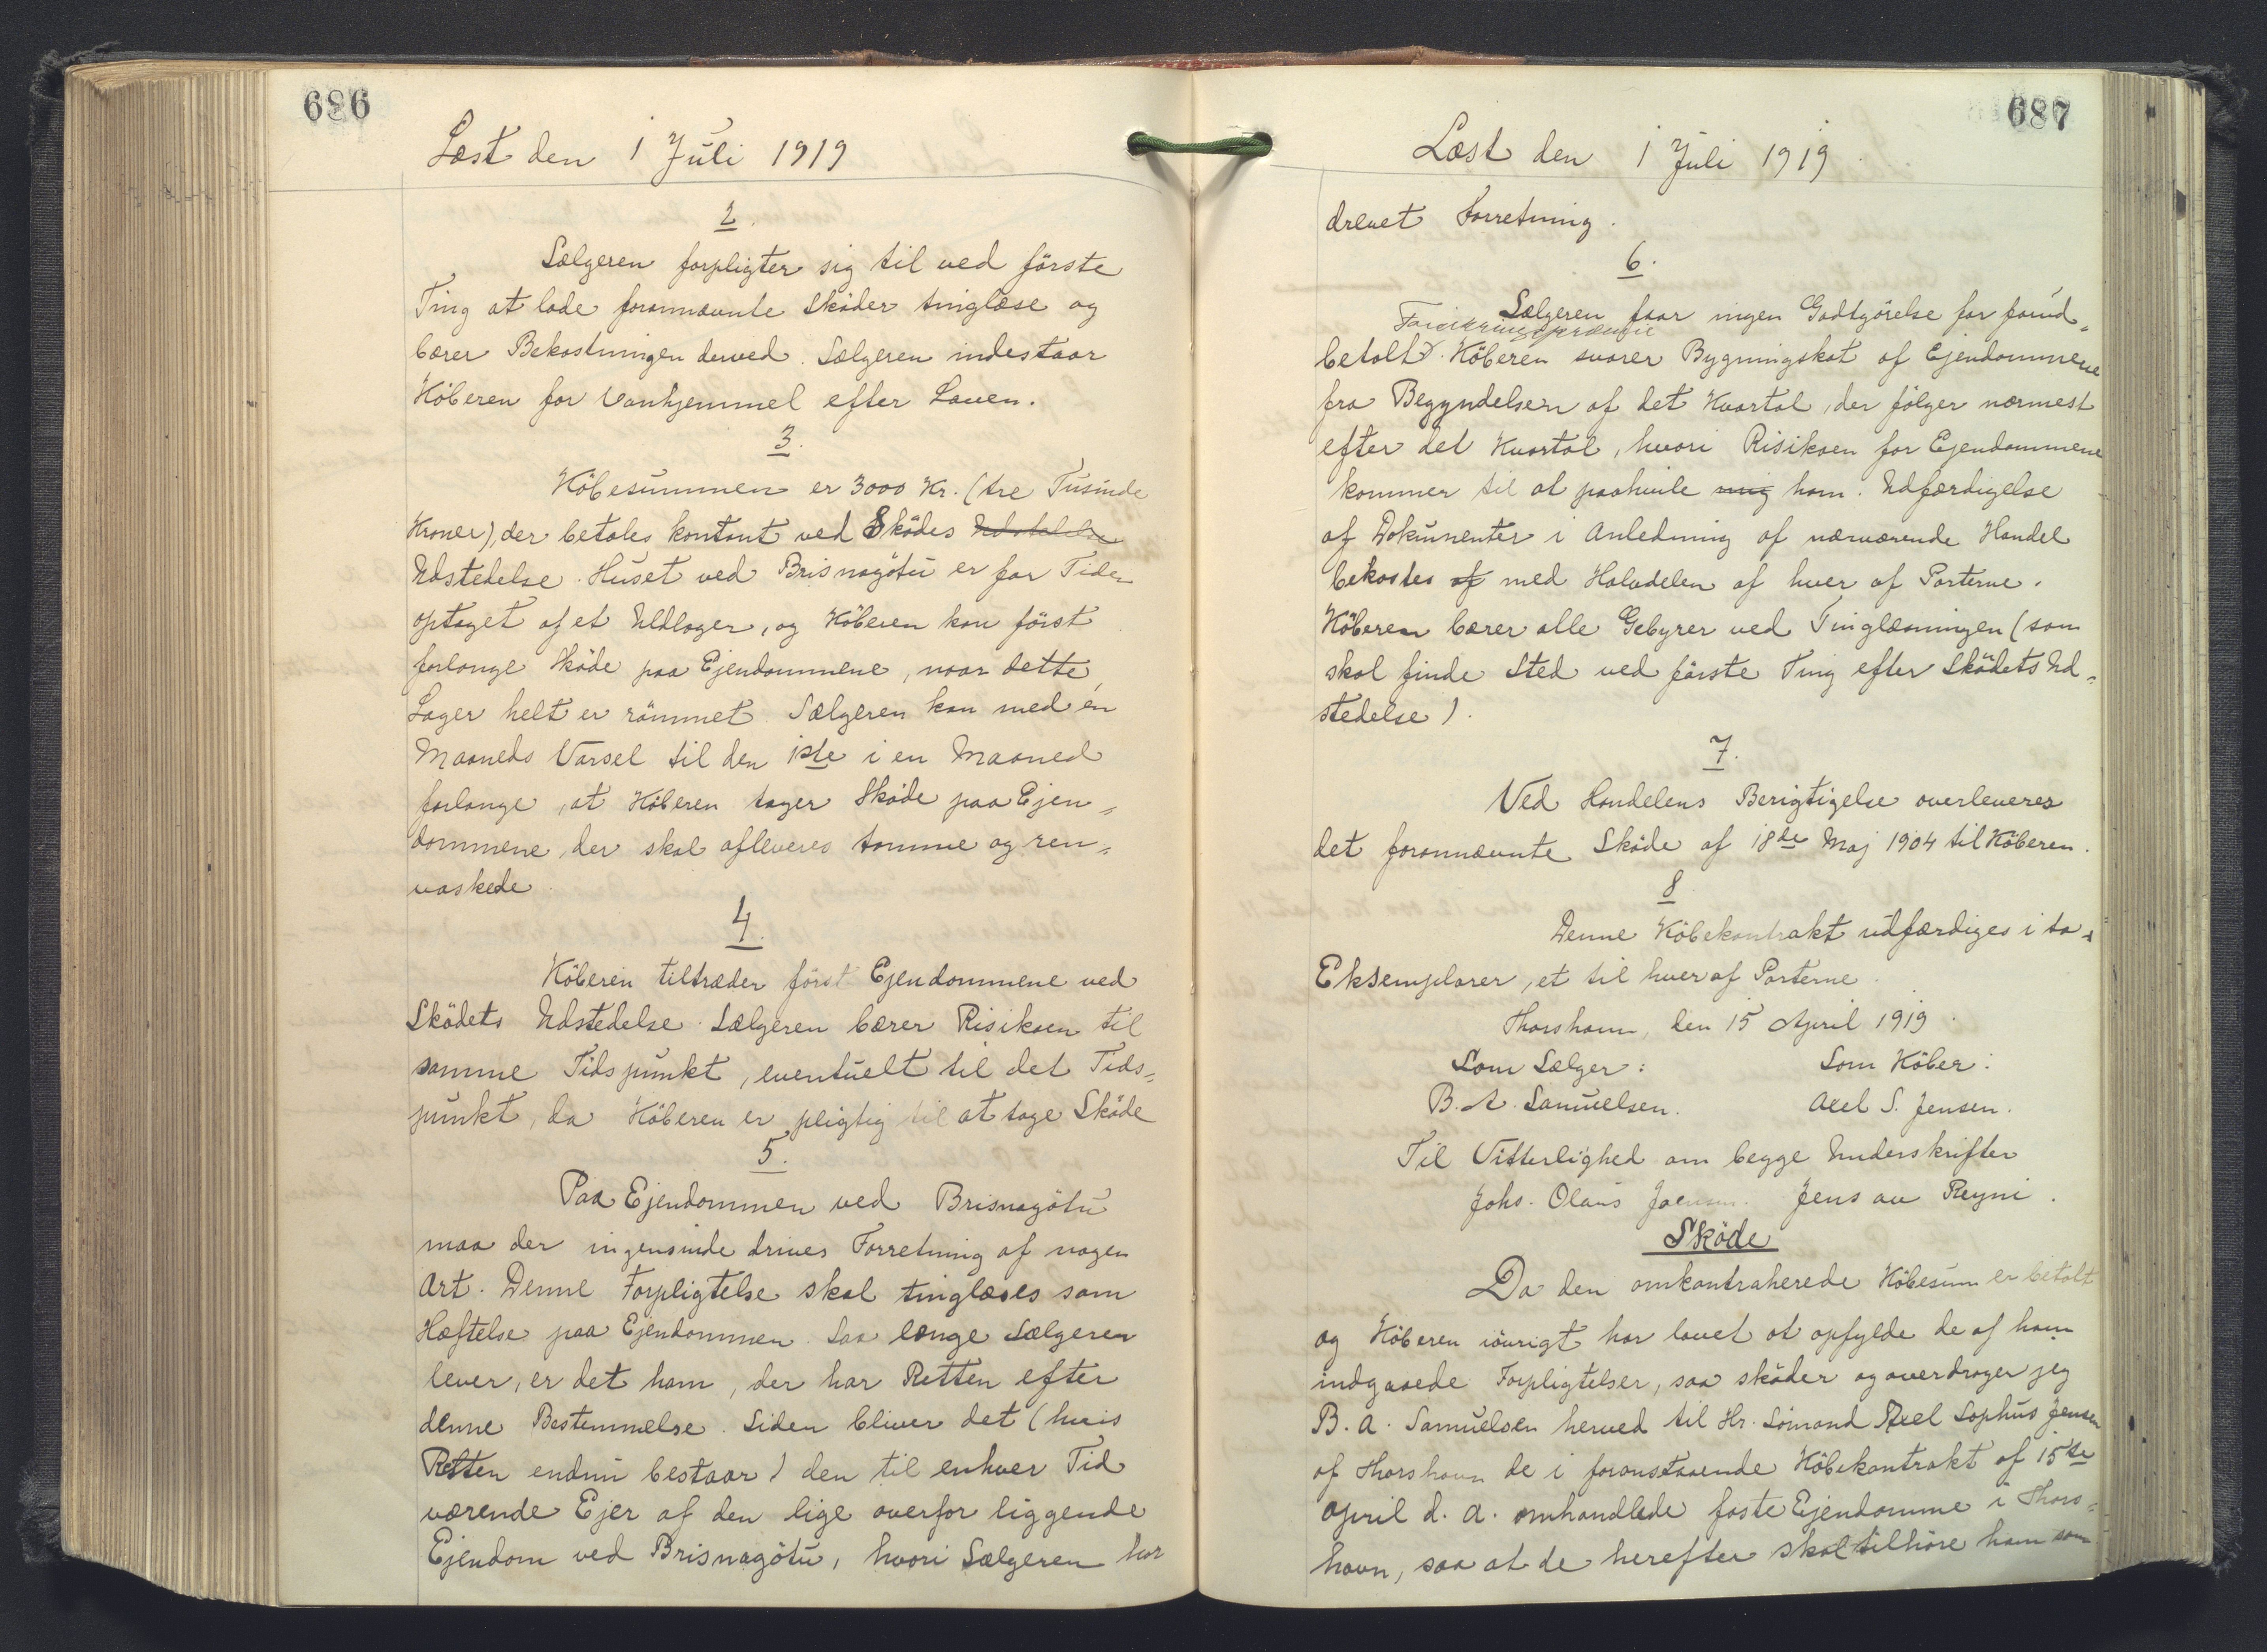 686
Læst den 1 Juli 1919
2.
Sælgeren forpligter sig til ved förste
Ting at lade forannævnte Skøder tinglæse og
bærer Bekostningen derved. Sælgeren indestaar
Köberen for Vanhjemmel efter Loven.
3.
Köbesummen er 3000 Kr. (tre Tusinde
Kroner), der betales kontant ved Skødes Udstedelse
Udstedelse. Huset ved Brisnagötu er for Tiden
optaget af et Uldlager, og Köberen kan först
forlange Sköde paa Ejendommene, naar dette
Lager helt er römmet. Sælgeren kan med én
Maaneds Varsel til den 1ste i en Maaned
forlange, at Köberen tager Sköde paa Ejen„
dommene, der skal afleveres tomme og ren„
vaskede.
4.
Köberen tiltræder först Ejendommene ved
Sködets Udstedelse. Sælgeren bærer Risikoen til
samme Tidspunkt, eventuelt til det Tids„
punkt, da Köberen er pligtig til at tage Sköde
5.
Paa Ejendommen ved Brisnagötu
maa der ingensinde drives Forretning af nogen
Art. Denne Forpligtelse skal tinglæses som
Hæftelse paa Ejendommen. Saa længe Sælgeren
lever, er det ham, der har Retten efter
denne Bestemmelse. Siden bliver det (hvis
Retten endnu bestaar) den til enhver Tid
værende Ejer af den lige overfor liggende
Ejendom ved Brisnagötu, hvori Sælgeren har
687
Læst den 1 Juli 1919.
drevet Forretning.
6.
Sælgeren faar ingen Godtgörelse for forud„
Forsikringspræmie
betalt. Köberen svarer Bygningskat af Ejendommene
fra Begyndelsen af det Kvartal, der fölger nærmest
efter det Kvartal, hvori Risikoen for Ejendommene
kommer til at paahvile mig ham. Udfærdigelse
af Dokumenter i Anledning af nærværende Handel
bekostes af med Halvdelen af hver af Parterne.
Köberen bærer alle Gebyrer ved Tinglæsningen (som
skal finde Sted ved förste Ting efter Sködets Ud„
stedelse).
7.
Ved Handelens Berigtigelse overleveres
det forannævnte Sköde af 18de Maj 1904 til Köberen.
8
Denne Köbekontrakt udfærdiges i to
Eksemplarer, et til hver af Parterne.
Thorshavn, den 15 April 1919.
Som Sælger: Som Köber:
B. A. Samuelsen. Axel S. Jensen.
Til Vitterlighed om begge Underskrifter
Johs. Olaus Joensen. Jens av Reyni.
Sköde
Da den omkontraherede Köbesum er betalt
og Köberen iövrigt har lovet at opfylde de af ham
indgaaede Forpligtelser, saa sköder og overdrager jeg
B. A. Samuelsen herved til Hr. Sömand Axel Sophus Jensen
af Thorshavn de i foranstaaende Köbekontrakt af 15de
April d. A. omhandlede faste Ejendomme i Thors„
havn, saa at de herefter skal tilhöre ham som